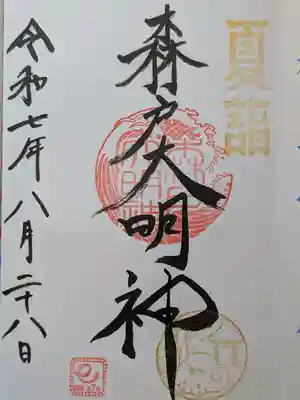 夏詣
森戸大明神
令和七年八月二十八日